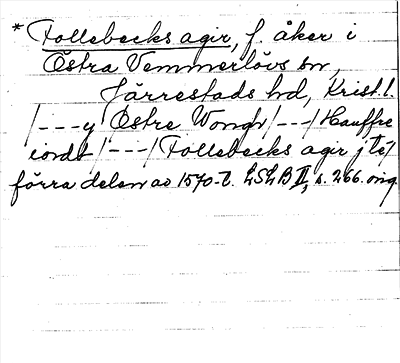 * Follebecks agir, f. åker i
Östra Vemmerlövs sn,
Järrestads hd, Krist. l.
/---y Östre Wongh /---/ Hauffre
iordt /---/ Follebecks agir j
förra delen av 1570-t. LSLB II, s. 266. orig.